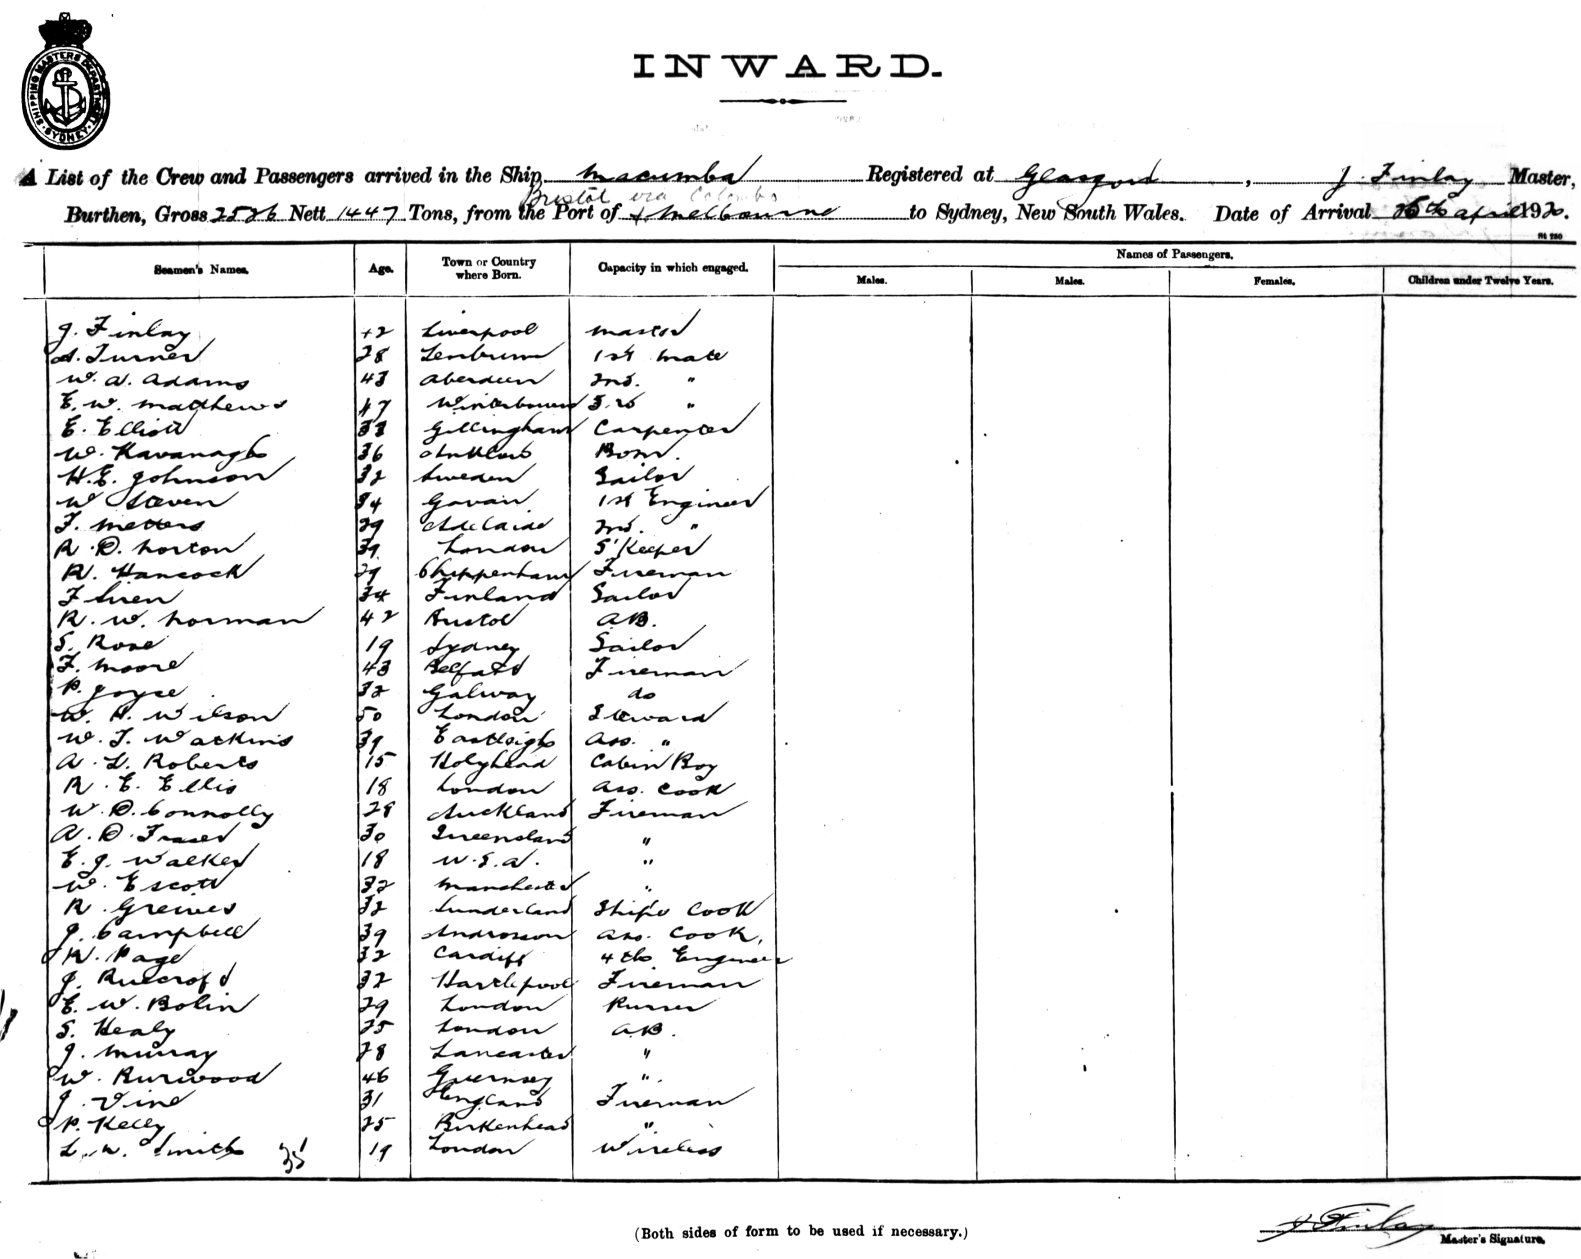 SHIPPING MASTERS DEPARTMENT SYDNEY
INWARD.
A List of the Crew and Passengers arrived in the Ship Macumba Registered at Glasgow, J. Finlay Master,
Bristol via Colombo
Burthen, Gross 2526 Nett 1447 Tons, from the Port of & Melbourne to Sydney, New South Wales. Date of Arrival April 1920.
Seamen's Names. Age. Town or Country where Born. Capacity in which engaged. Names of Passengers.
Males. Males. Females. Children under Twelve Years.
J. Finlay 42 Liverpool Master
A. Turner 28 1st Mate
W. A. Adams 43 Aberdeen 2nd. "
E. W. Matthews 47 Winterbourne 3rd "
E. Elliott 33 Gillingham Carpenter
W. Kavanagh 36 Arklow Bosn.
H. E. Johnson 32 Sweden Sailor
W Steven 34 Govan 1st Engineer
F. Metters 29 Adelaide 2nd. "
R. D. Norton 39 London S'Keeper
R. Hancock 29 Chippenham Fireman
F Siren 34 Finland Sailor
R. W. Norman 42 Bristol A.B.
S. Rose 19 Sydney Sailor
F. Moore 43 Belfast Fireman
P. Joyce 32 Galway do
W. H. Wilson 50 London Steward
W. T. Watkins 39 Eastleigh Ass. "
A. L. Roberts 15 Holyhead Cabin Boy
R. E. Ellis 18 London Ass. Cook
W. D. Connolly 28 Auckland Fireman
A. D. Fraser 30 Queensland "
E. J. Walker 18 W.S.A. "
W. Escott 32 Manchester "
R. Greives 32 Sunderland Ship's Cook
J. Campbell 39 Androssan Ass. Cook,
R. Page 32 Cardiff 4th Engineer
J. Ruecroft 32 Hartlepool Fireman
E. W. Bolin 29 London Purser
S. Healy 25 London A.B.
J. Murray 28 Lancaster "
W. Burwood 46 Guernsey "
J. Vine 31 England Fireman
P. Kelly 25 Birkenhead "
L. W. Smith 35 19 London Wireless
(Both sides of form to be used if necessary.)
J Finlay
Master's Signature.